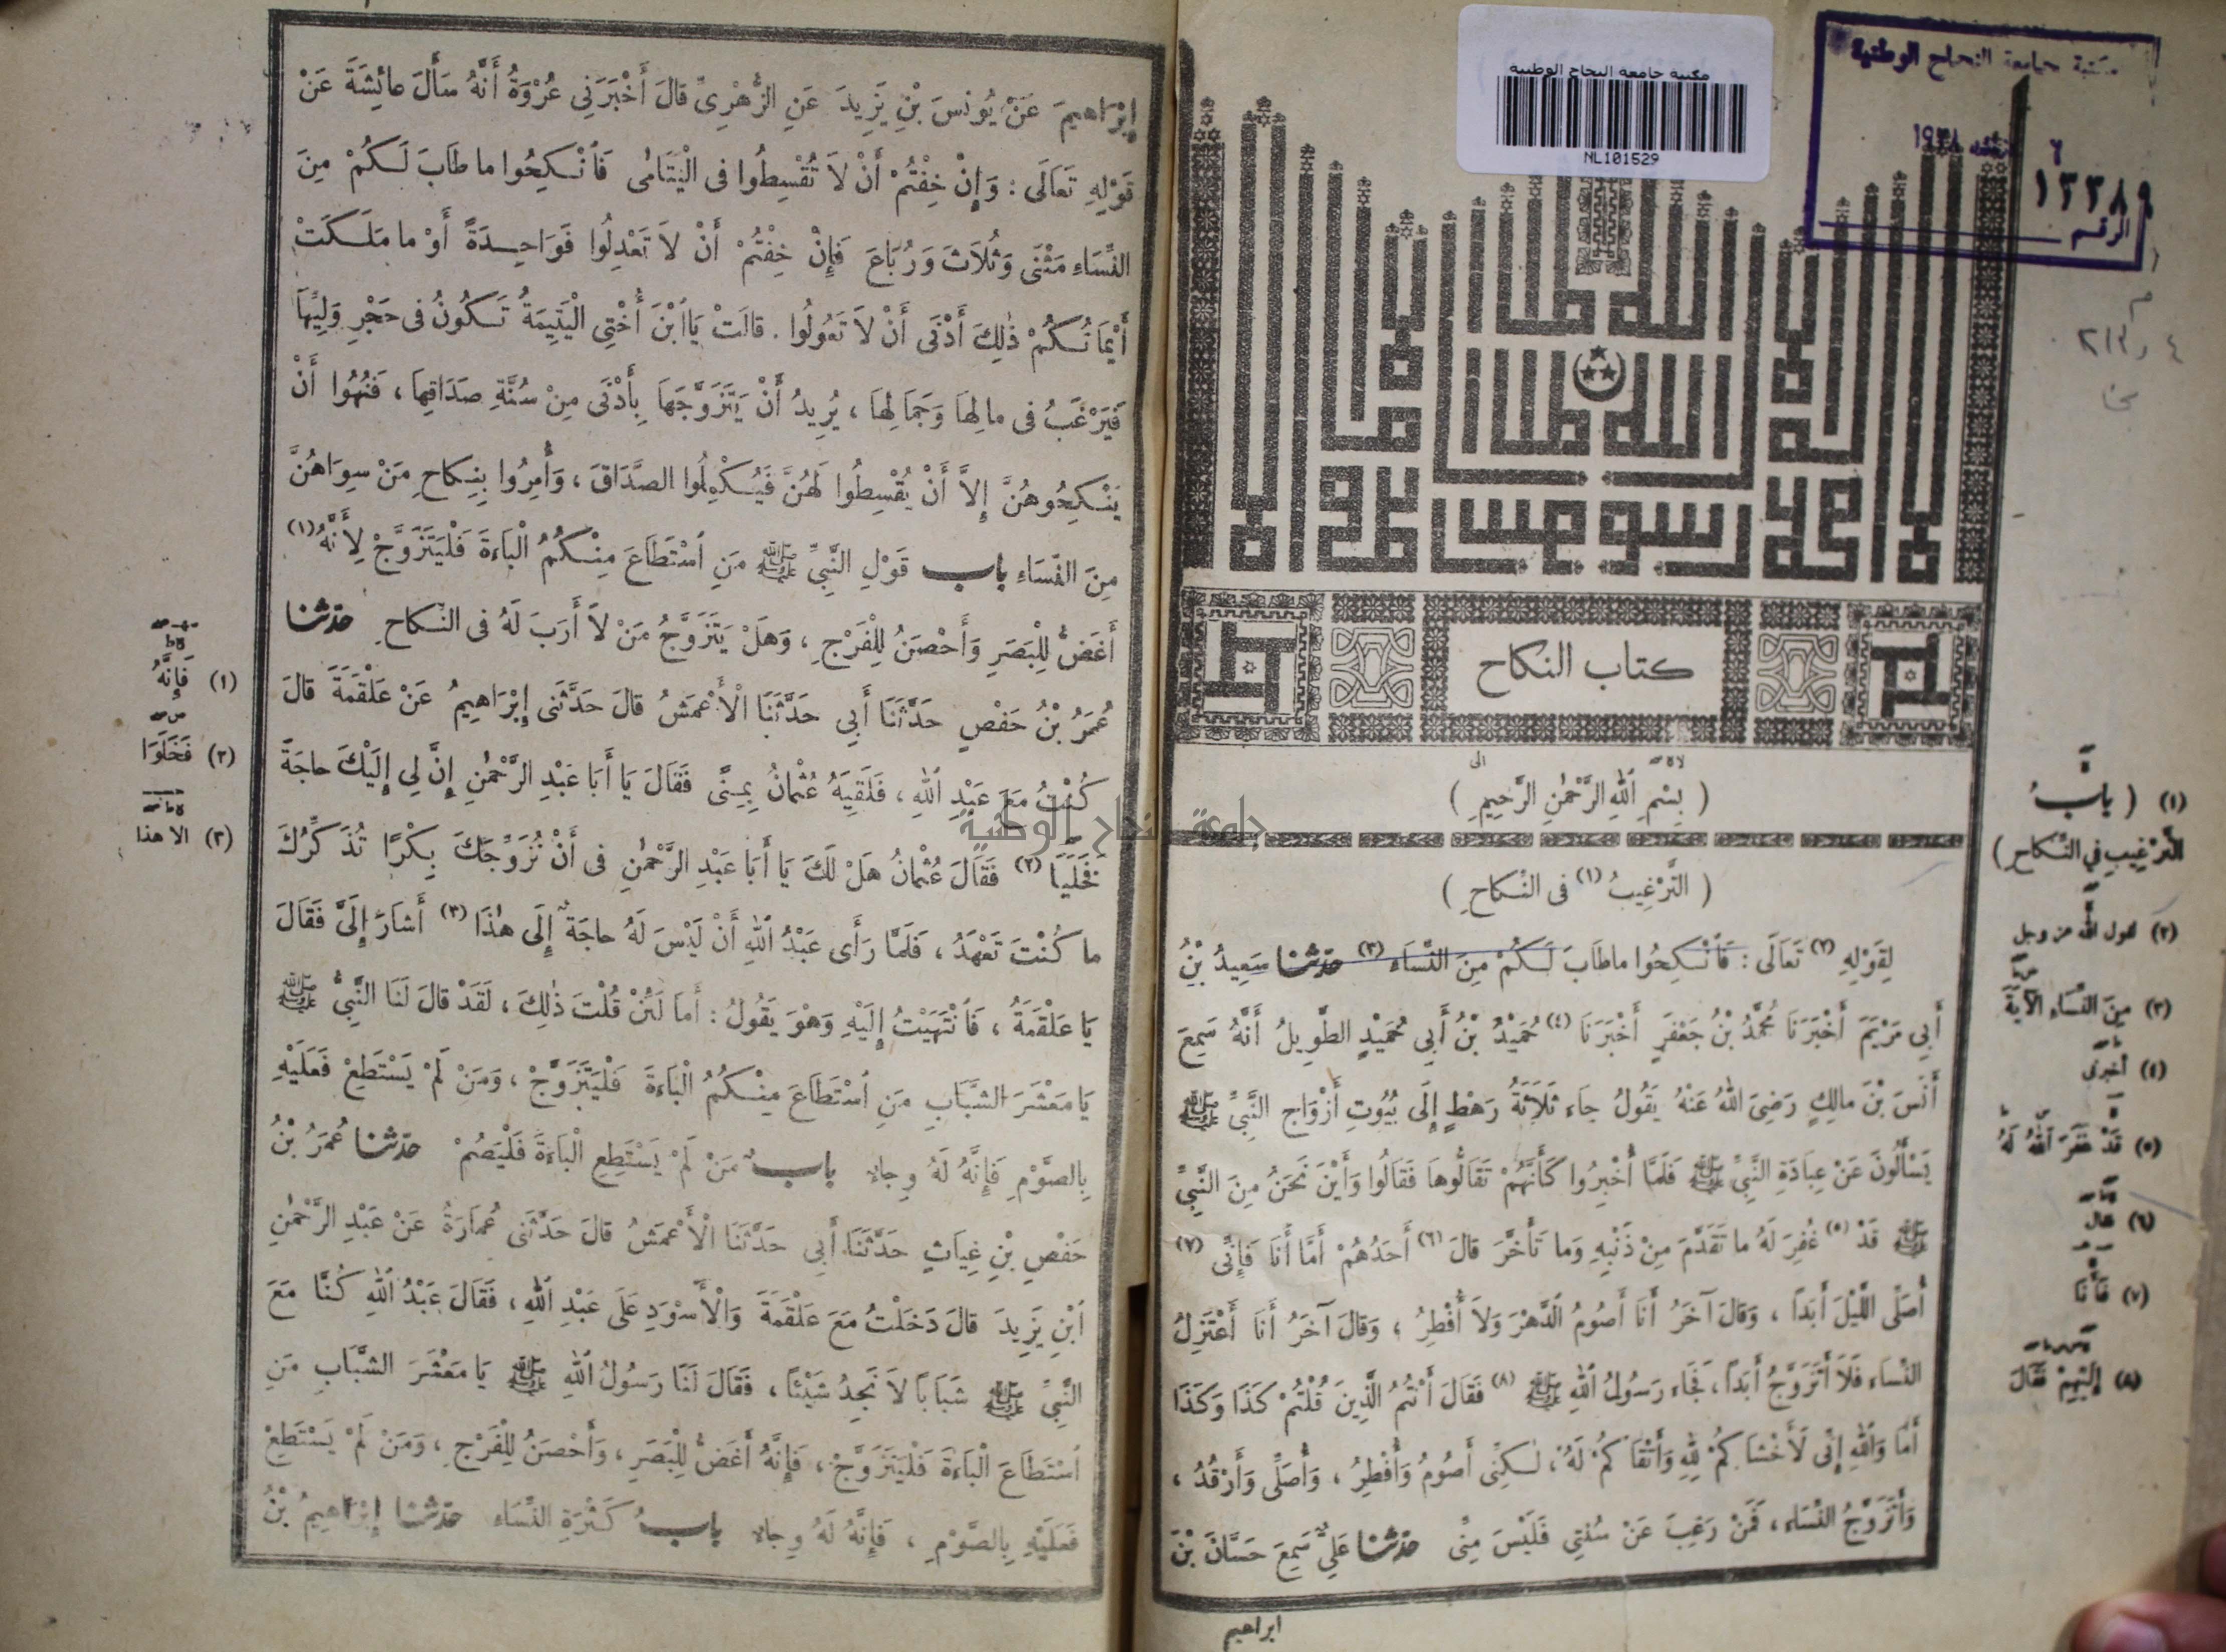 مكتبة جامعة النجاح الوطنية
NL101529
مكتبة جامعة النجاح الوطنية
١٣٣٨٩
الرقم
كتاب النكاح
( بِسْمِ اللهِ الرَّحْمٰنِ الرَّحِيمِ )
( التَّرْغِيبُ (١) فى النِّكاحِ )
لِقَوْلِهِ (٢) تَعَالَى : فَأَنْكِحُوا ماطَابَ لَكُمْ مِنَ النِّسَاء (٣) حدّثنا سَعِيدُ بْنُ
أَبِي مَرْيَمَ أَخْبَرَنَا مُحَمَّدُ بْنُ جَعْفَرٍ أَخْبَرَنَا (٤) حُمَيْدُ بْنُ أَبِي حُمَيْدٍ الطَّوِيلُ أَنَّهُ سَمِعَ
أَنَسَ بْنَ مالِكٍ رَضِىَ اللهُ عَنْهُ يَقُولُ جاء ثَلاَثَةُ رَهْطٍ إِلَى بُيُوتِ أَزْوَاجِ النَّبِيِّ ﷺ
يَسْأَلُونَ عَنْ عِبَادَةِ النَّبِيِّ ﷺ فَلَمَّا أُخْبِرُوا كَأَنَّهُمْ تَقَالُّوهَا فَقَالُوا وَأَيْنَ نَحْنُ مِنَ النَّبِيِّ
ﷺ قَدْ (٥) غُفِرَ لَهُ ما تَقَدَّمَ مِنْ ذَنْبِهِ وَما تَأَخَّرَ قالَ (٦) أَحَدُهُمْ أَمَّا أَنَا فَإِنِّى (٧)
أُصَلِّى اللَّيْلَ أَبَداً ، وَقالَ آخَرُ أَنَا أَصُومُ الدَّهْرَ وَلاَ أُفْطِرُ ، وَقالَ آخَرُ أَنَا أَعْتَزِلُ
النِّسَاء فَلاَ أَتَزَوَّجُ أَبَداً ، فَجَاء رَسُولُ اللهِ ﷺ (٨) فَقَالَ أَنْتُمُ الَّذِينَ قُلْتُمْ كَذَا وَكَذَا
أَمَا وَاللهِ إِنِّى لَأَخْشَاكُمْ لِلهِ وَأَتْقَاكُمْ لَهُ ، لٰكِنِّى أَصُومُ وَأُفْطِرُ ، وَأُصَلِّى وَأَرْقُدُ ،
وَأَتَزَوَّجُ النِّسَاء ، فَمَنْ رَغِبَ عَنْ سُنَّتِى فَلَيْسَ مِنِّى حدّثنا عَلِيٌّ سَمِعَ حَسَّانَ بْنَ
ابراهيم
(١) ( بابُ
التَّرْغِيبِ فِي النِّكاحِ )
(٢) لقول الله عز وجل
(٣) مِنَ النِّسَاءِ الآيَةَ
(٤) أخبرنى
(٥) قَدْ غَفَرَ اللهُ لَهُ
(٦) فقال
(٧) فَأَنَا
(٨) إِلَيْهِمْ فَقَالَ
إِبْرَاهِيمَ عَنْ يُونُسَ بْنِ يَزِيدَ عَنِ الزُّهْرِىِّ قالَ أَخْبَرَنِى عُرْوَةُ أَنَّهُ سَأَلَ عائِشَةَ عَنْ
قَوْلِهِ تَعَالَى : وَإِنْ خِفْتُمْ أَنْ لاَ تُقْسِطُوا فى الْيَتَامٰى فَأَنْكِحُوا ما طَابَ لَكُمْ مِنَ
النِّسَاءِ مَثْنَى وَثُلاَثَ وَرُبَاعَ فَإِنْ خِفْتُمْ أَنْ لاَ تَعْدِلُوا فَوَاحِدَةً أَوْ ما مَلَكَتْ
أَيْمَانُكُمْ ذٰلِكَ أَدْنَى أَنْ لاَ تَعُولُوا . قالَتْ يَا ابْنَ أُخْتِى الْيَتِيمَةُ تَكُونُ فى حَجْرِ وَلِيِّهَا
فَيَرْغَبُ فى مالِهَا وَجَمَالِهَا ، يُرِيدُ أَنْ يَتَزَوَّجَهَا بِأَدْنَى مِنْ سُنَّةِ صَدَاقِهَا ، فَنُهُوا أَنْ
يَنْكِحُوهُنَّ إِلاَّ أَنْ يُقْسِطُوا لَهُنَّ فَيُكْمِلُوا الصَّدَاقَ ، وَأُمِرُوا بِنِكاحِ مَنْ سِوَاهُنَّ
مِنَ النِّسَاءِ باب قَوْلِ النَّبِيِّ ﷺ مَنِ اسْتَطَاعَ مِنْكُمُ الْبَاءَةَ فَلْيَتَزَوَّجْ لِأَنَّهُ (١)
أَغَضُّ لِلْبَصَرِ وَأَحْصَنُ لِلْفَرْجِ ، وَهَلْ يَتَزَوَّجُ مَنْ لاَ أَرَبَ لَهُ فى النِّكاحِ حدّثنا
عُمَرُ بْنُ حَفْصٍ حَدَّثَنَا أَبِي حَدَّثَنَا الْأَعْمَشُ قالَ حَدَّثَنِى إِبْرَاهِيمُ عَنْ عَلْقَمَةَ قالَ
كُنْتُ مَعَ عَبْدِ اللهِ ، فَلَقِيَهُ عُثْمانُ بِمِنًى فَقَالَ يَا أَبَا عَبْدِ الرَّحْمٰنِ إِنَّ لِي إِلَيْكَ حاجَةً
فَخَلَيَا (٢) فَقَالَ عُثْمانُ هَلْ لَكَ يَا أَبَا عَبْدِ الرَّحْمٰنِ فى أَنْ نُزَوِّجَكَ بِكْرًا تُذَكِّرُكَ
ما كُنْتَ تَعْهَدُ ، فَلَمَّا رَأَى عَبْدُ اللهِ أَنْ لَيْسَ لَهُ حاجَةٌ إِلَى هٰذَا (٣) أَشَارَ إِلَىَّ فَقَالَ
يَا عَلْقَمَةُ ، فَانْتَهَيْتُ إِلَيْهِ وَهْوَ يَقُولُ : أَمَا لَئِنْ قُلْتَ ذٰلِكَ ، لَقَدْ قالَ لَنَا النَّبِيُّ ﷺ
يَا مَعْشَرَ الشَّبَابِ مَنِ اسْتَطَاعَ مِنْكُمُ الْبَاءَةَ فَلْيَتَزَوَّجْ ، وَمَنْ لَمْ يَسْتَطِعْ فَعَلَيْهِ
بِالصَّوْمِ فَإِنَّهُ لَهُ وِجاء بابٌ مَنْ لَمْ يَسْتَطِعِ الْبَاءَةَ فَلْيَصُمْ حدّثنا عُمَرُ بْنُ
حَفْصِ بْنِ غِيَاثٍ حَدَّثَنَا أَبِي حَدَّثَنَا الْأَعْمَشُ قالَ حَدَّثَنِى عُمَارَةُ عَنْ عَبْدِ الرَّحْمٰنِ
ابْنِ يَزِيدَ قالَ دَخَلْتُ مَعَ عَلْقَمَةَ وَالْأَسْوَدِ عَلَى عَبْدِ اللهِ ، فَقَالَ عَبْدُ اللهِ كُنَّا مَعَ
النَّبِيِّ ﷺ شَبَابًا لاَ نَجِدُ شَيْئًا ، فَقَالَ لَنَا رَسُولُ اللهِ ﷺ يَا مَعْشَرَ الشَّبَابِ مَنِ
اسْتَطَاعَ الْبَاءَةَ فَلْيَتَزَوَّجْ ، فَإِنَّهُ أَغَضُّ لِلْبَصَرِ ، وَأَحْصَنُ لِلْفَرْجِ ، وَمَنْ لَمْ يَسْتَطِعْ
فَعَلَيْهِ بِالصَّوْمِ ، فَإِنَّهُ لَهُ وِجاء بابُ كَثْرَةِ النِّسَاء حدّثنا إِبْرَاهِيمُ بْنُ
(١) فَإِنَّهُ
(٢) فَخَلَوَا
(٣) الا هذا
جامعة النجاح الوطنية